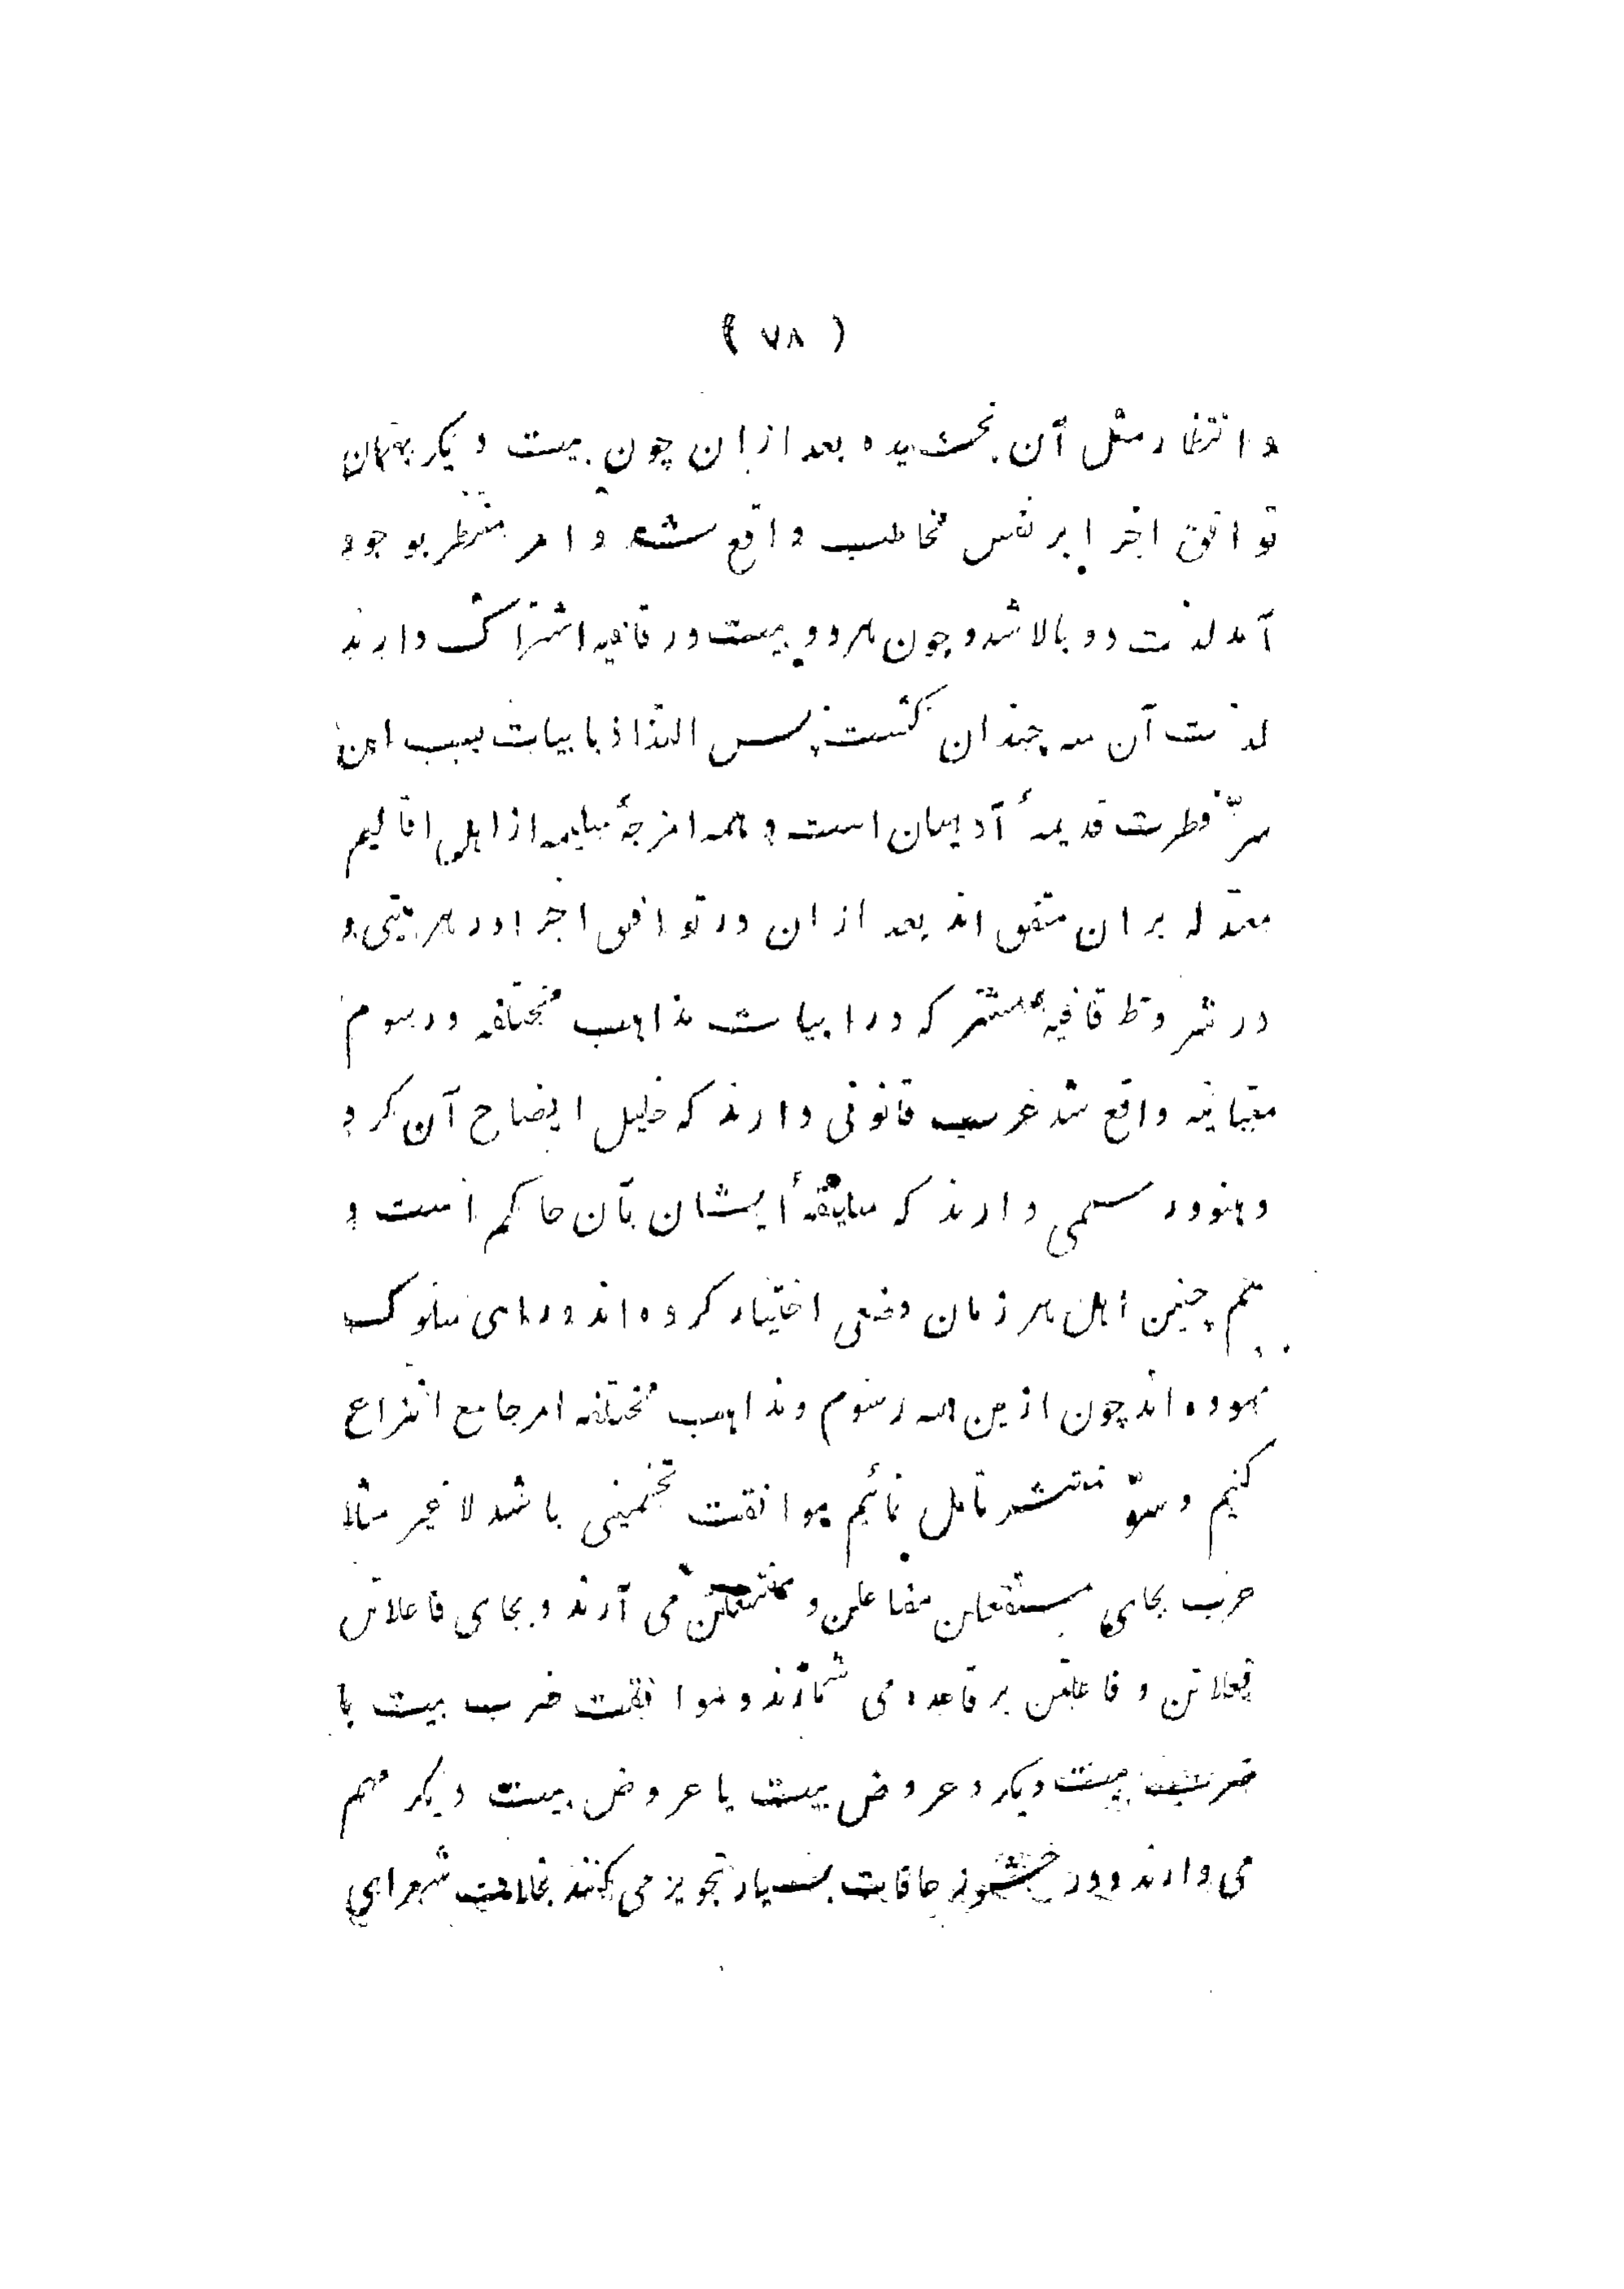 ( ٧٨ )
و انتظار مثل آن بخشیده بعد ازان چون بیت دیکر بهمان
توافق اجزا بر نفس مخاطب واقع شد و امر منتظر بوجود
آمد لذت دو بالا شد و چون هر دو بیت در قافیه اشتراک دارند
لذت آن سه چندان کشت پس التذاذ بابیات بسبب این
سرّ فطرت قدیمهٔ آدمیان است و همه امزجهٔ سلیمه از اهل اقالیم
معتدله بران متفق اند بعد ازان در توافق اجزا در هر بیتی و
در شروط قافیه مشترکه در ابیات مذاهب مختلفه و رسوم
متباینه واقع شد عرب قانونی دارند که خلیل ایضاح آن کرد
و هنود رسمی دارند که سلیقهٔ ایشان بآن حاکم است و
هم چنین اهل هر زمان وضعی اختیار کرده اند و راهی سلوک
نموده اند چون ازین همه رسوم و مذاهب مختلفه امر جامع انتزاع
کنیم و سرّ منتشر تامل نمائیم موافقت تخمینی باشد لا غیر مثلا
عرب بجای مستفعلن مفاعلن و مفتعلن می آرند و بجای فاعلاتن
فعلاتن و فاعلتن بر قاعده می شمارند و موافقت ضرب بیت با
ضرب بیت دیکر و عروض بیت با عروض بیت دیکر مهم
می دارند و در حشو زحافات بسیار تجویز می کنند بخلاف شعرای